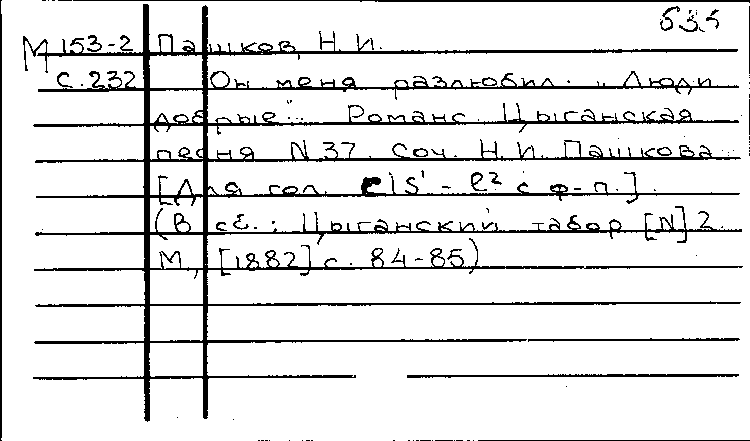 635
М 153-2 Пашков, Н. И.
С. 232 Он меня разлюбил. „Люди
добрые“... Романс. Цыганская
песня N 37. Соч. Н. И. Пашкова
[Для гол. cis¹ - e² с ф-п.].
(В сб.: Цыганский табор [N] 2.
М., [1882] с. 84-85)